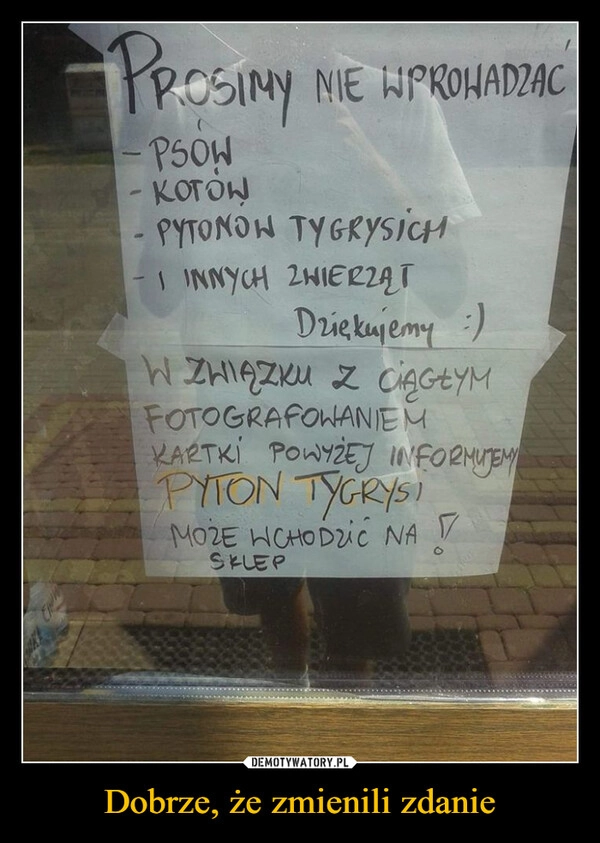 PROSIMY NIE WPROWADZAĆ
- PSÓW
- KOTÓW
- PYTONÓW TYGRYSICH
- I INNYCH ZWIERZĄT
Dziękujemy :)
W ZWIĄZKU Z CIĄGŁYM
FOTOGRAFOWANIEM
KARTKI POWYŻEJ INFORMUJEMY
PYTON TYGRYSI
MOŻE WCHODZIĆ NA !
SKLEP
DEMOTYWATORY.PL
Dobrze, że zmienili zdanie